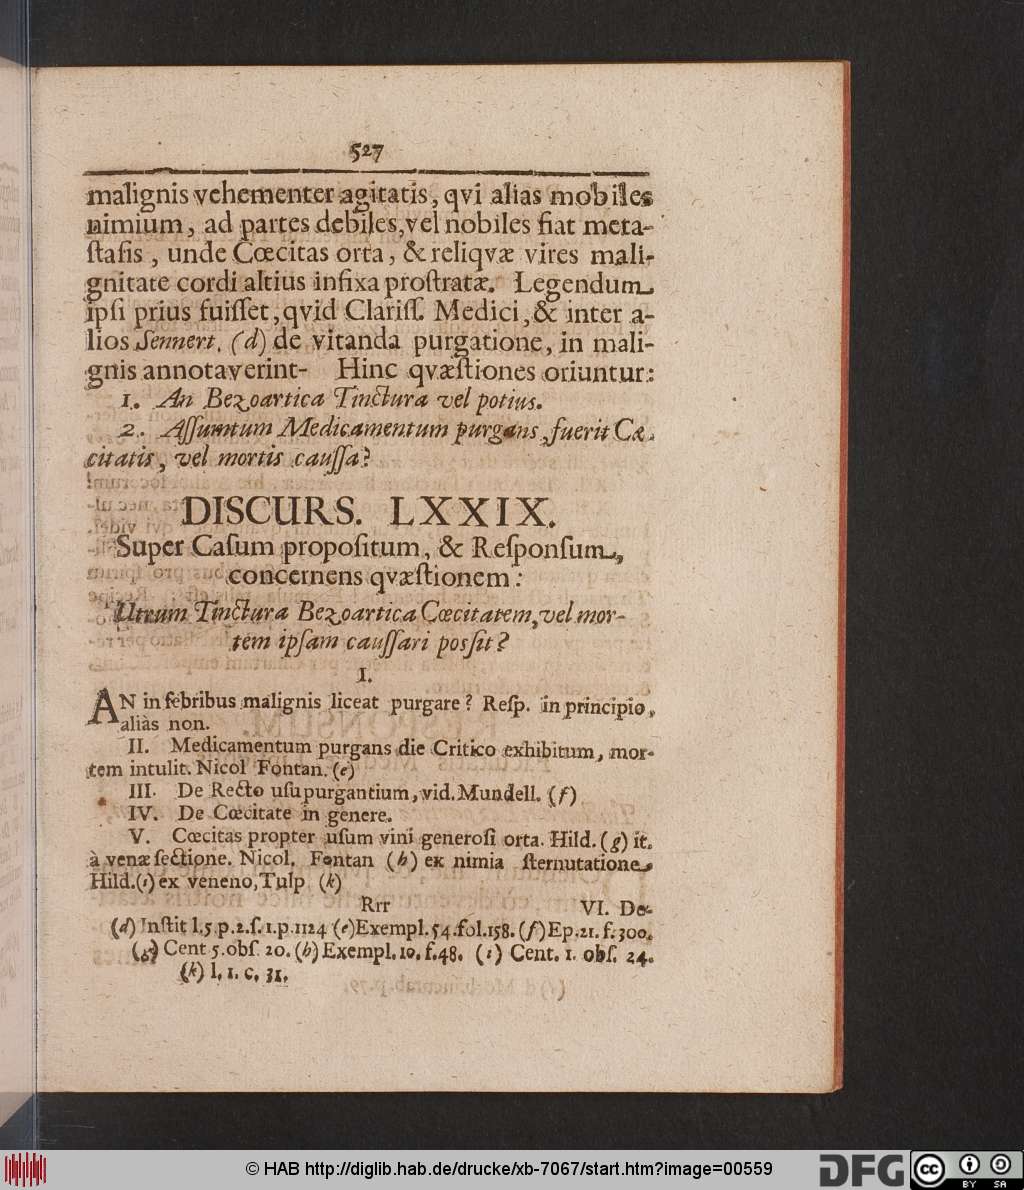 527
malignis vehementer agitatis, qvi alias mobiles
nimium, ad partes debiles, vel nobiles fiat meta-
ſtaſis, unde Cœcitas orta, & reliqvæ vires mali-
gnitate cordi altius infixa proſtratæ. Legendum
ipſi prius fuiſſet, qvid Clariſſ. Medici, & inter a-
lios Sennert. (d) de vitanda purgatione, in mali-
gnis annotaverint- Hinc qvæſtiones oriuntur:
1. An Bezoartica Tinctura vel potius.
2. Aſſumtum Medicamentum purgans, fuerit Cæ-
citatis, vel mortis cauſſa?
DISCURS. LXXIX.
Super Caſum propoſitum, & Reſponſum,
concernens qvæſtionem:
Utrum Tinctura Bezoartica Cœcitatem, vel mor-
tem ipſam cauſſari posſit?
I.
AN in febribus malignis liceat purgare? Reſp. in principio,
aliàs non.
II. Medicamentum purgans die Critico exhibitum, mor-
tem intulit. Nicol Fontan. (e)
III. De Recto uſu purgantium, vid. Mundell. (f)
IV. De Cœcitate in genere.
V. Cœcitas propter uſum vini generoſi orta. Hild. (g) it.
à venæ ſectione. Nicol. Fontan (h) ex nimia ſternutatione,
Hild. (i) ex veneno, Tulp (k)
Rrr VI. De-
(d) Inſtit l. 5. p. 2. ſ. 1. p. 1124 (e) Exempl. 54. fol. 158. (f) Ep. 21. f. 300.
(g) Cent 5. obſ 20. (h) Exempl. 10. f. 48. (i) Cent. 1. obſ. 24.
(k) l. 1. c. 31.
© HAB http://diglib.hab.de/drucke/xb-7067/start.htm?image=00559
DFG
cc
BY SA